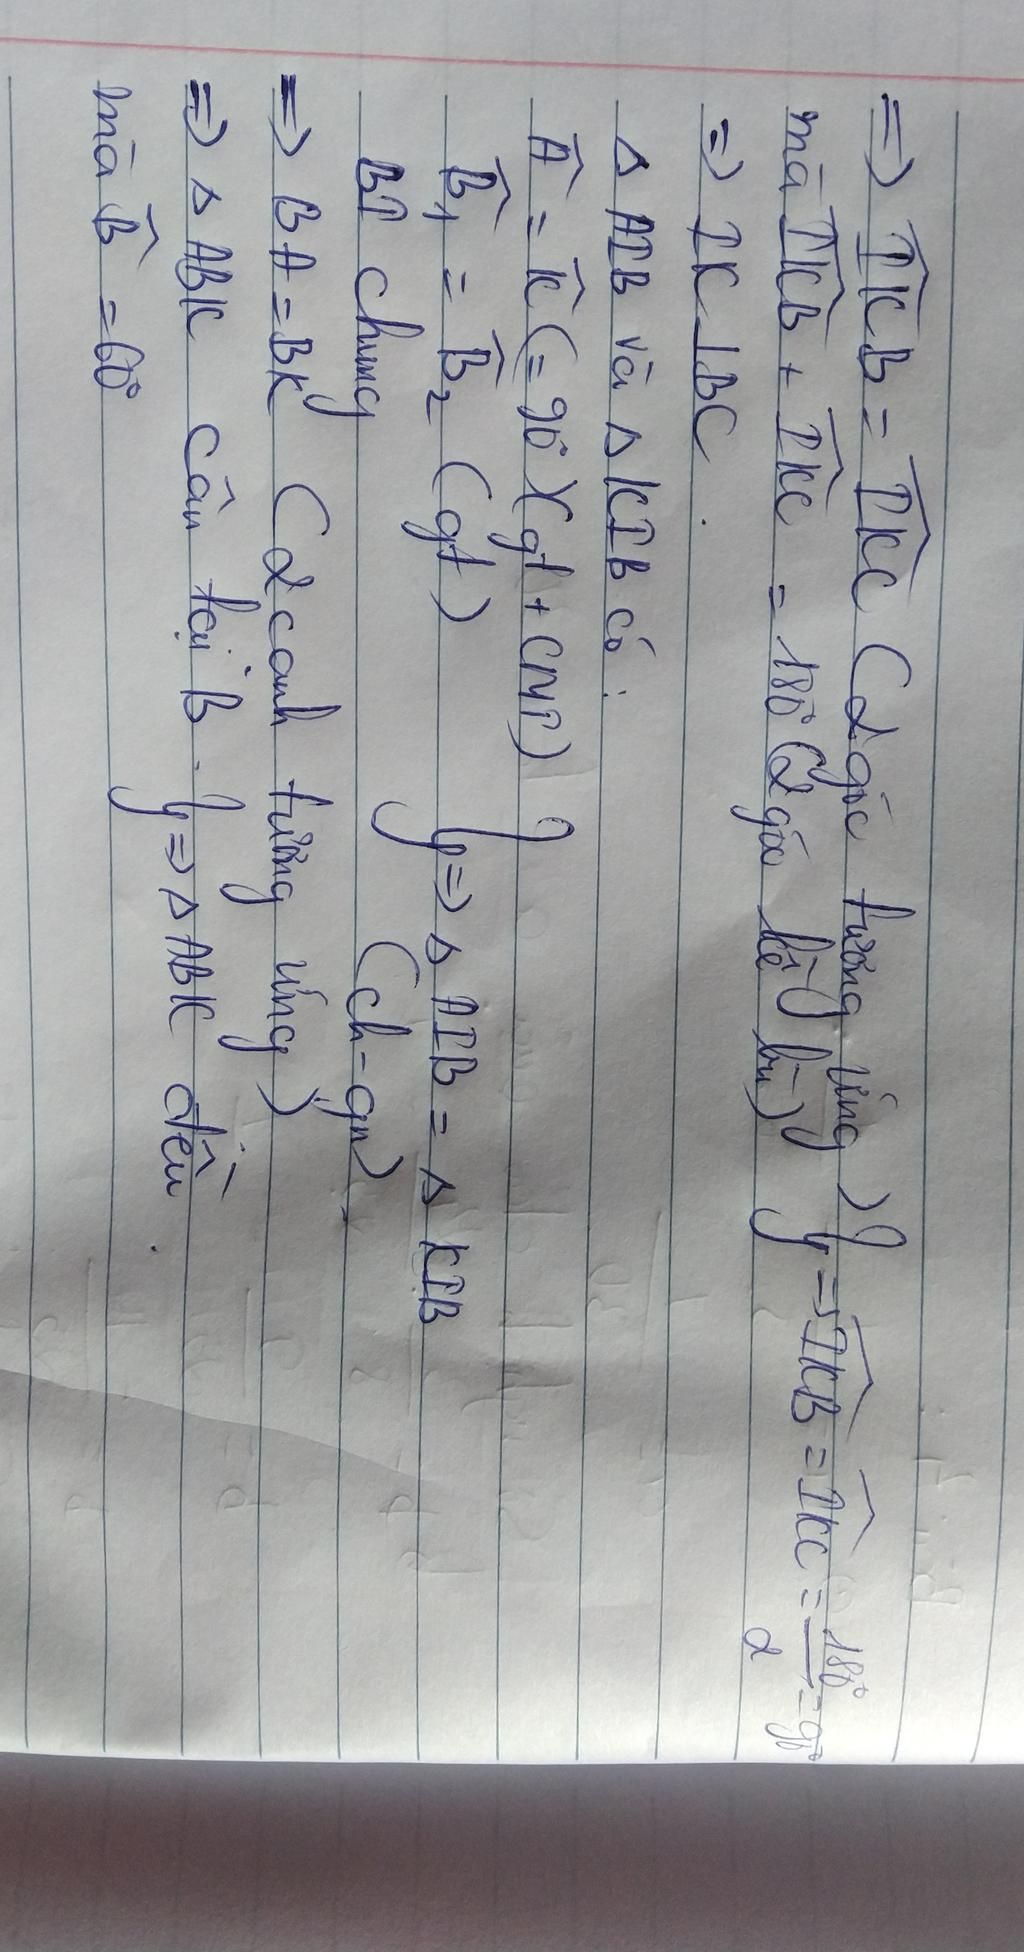 => \widehat{IKB} = \widehat{IKC} (2 góc tương ứng)
mà \widehat{IKB} + \widehat{IKC} = 180° (2 góc kề bù) } => \widehat{IKB} = \widehat{IKC} = 180°/2 = 90°
=> IK ⊥ BC.
Δ AIB và Δ KIB có:
\widehat{A} = \widehat{K} (= 90°)(gt + CMT)
\widehat{B}₁ = \widehat{B}₂ (gt) } => Δ AIB = Δ KIB
BI chung (ch-gn)
=> BA = BK (2 cạnh tương ứng)
=> Δ ABK cân tại B.
mà \widehat{B} = 60° } => Δ ABK đều